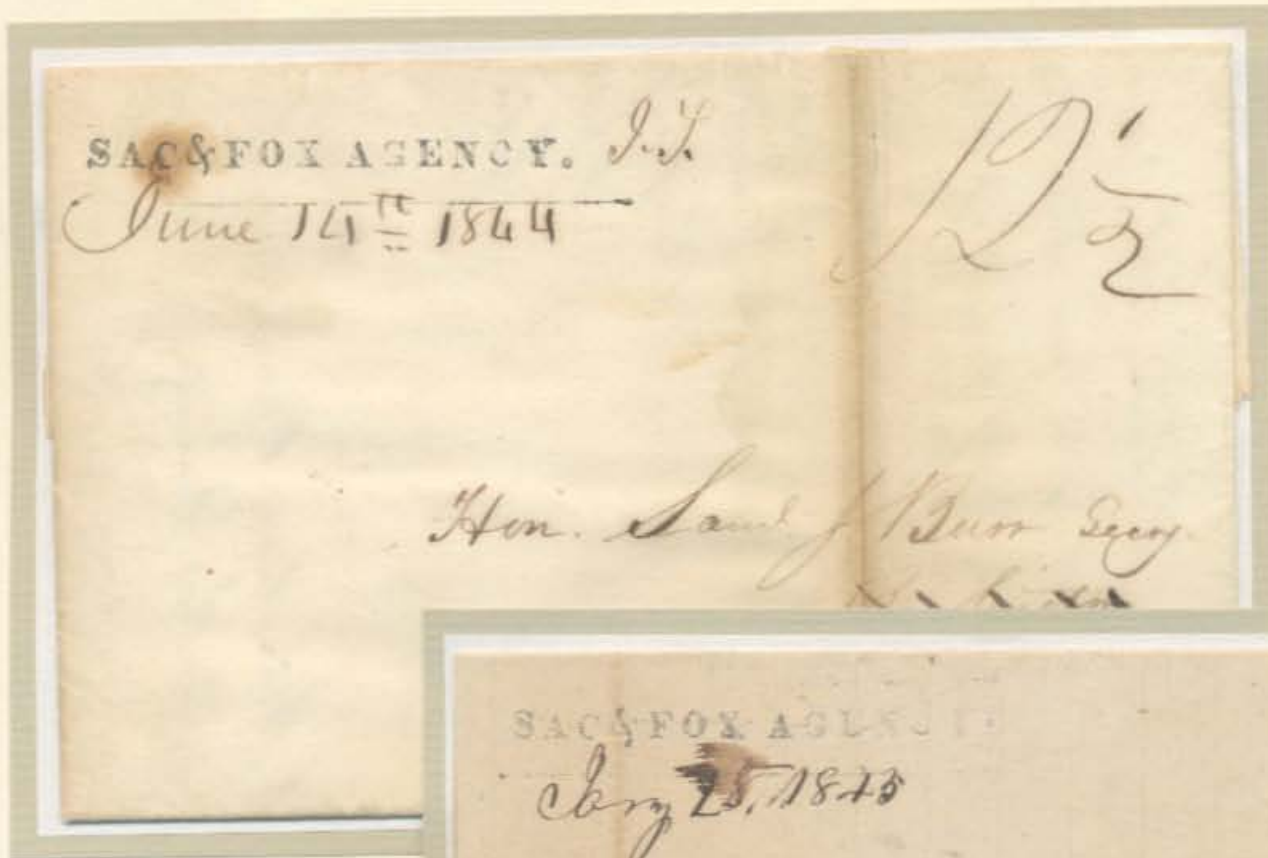 SAC & FOX AGENCY. I.T.
June 14th 1844
12 1/2
Hon. Saml J Burr Secry.
SAC & FOX AGENCY
Jany 25, 1845